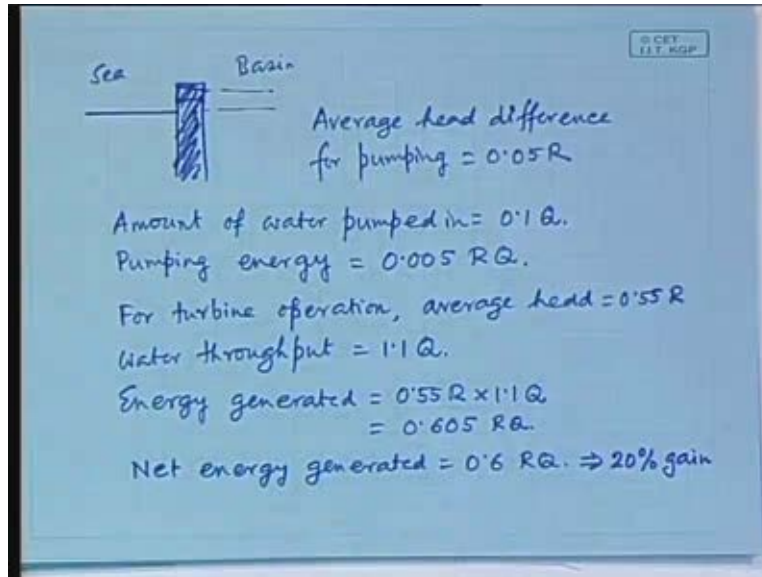 © CET
I.I.T. KGP
Sea Basin
Average head difference
for pumping = 0.05R
Amount of water pumped in = 0.1 Q.
Pumping energy = 0.005 RQ.
For turbine operation, average head = 0.55 R
Water throughput = 1.1 Q.
Energy generated = 0.55 R × 1.1 Q
= 0.605 RQ.
Net energy generated = 0.6 RQ. ⇒ 20% gain